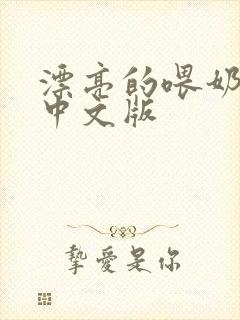 漂亮的喂奶
中文版
挚爱是你